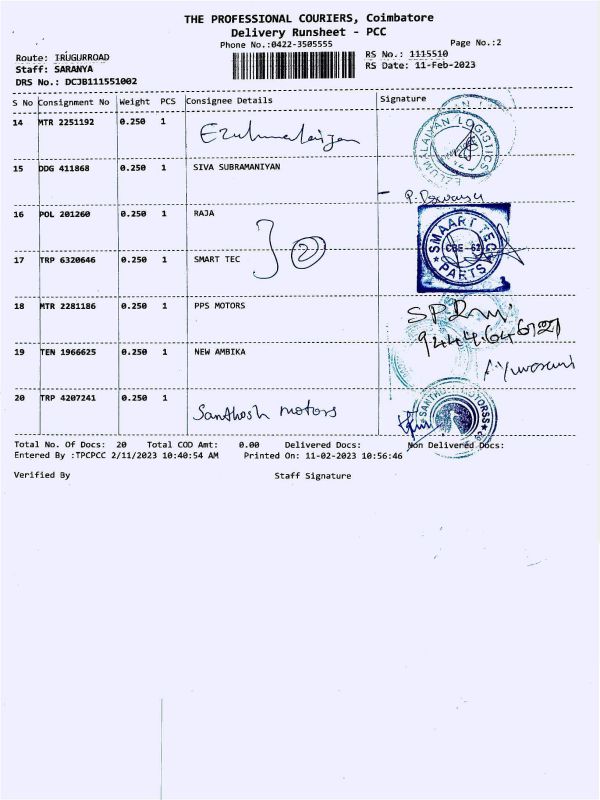 THE PROFESSIONAL COURIERS, Coimbatore
Delivery Runsheet - PCC
Phone No.:0422-3505555
Page No.:2
Route: IRUGURROAD
RS No.: 1115510
Staff: SARANYA
RS Date: 11-Feb-2023
DRS No.: DCJB111551002
S No Consignment No Weight PCS Consignee Details Signature
14 MTR 2251192 0.250 1 Ezhumalaiyan
EZUMALAIYAN LOGISTICS
15 DDG 411868 0.250 1 SIVA SUBRAMANIYAN
16 POL 201260 0.250 1 RAJA
2
SMAART TECH
CBE-62
PARTS
17 TRP 6320646 0.250 1 SMART TEC
18 MTR 2281186 0.250 1 PPS MOTORS
19 TEN 1966625 0.250 1 NEW AMBIKA
20 TRP 4207241 0.250 1 Santhosh motors
SANTHOSH MOTORSS
Total No. Of Docs: 20 Total COD Amt: 0.00 Delivered Docs: Non Delivered Docs:
Entered By :TPCPCC 2/11/2023 10:40:54 AM Printed On: 11-02-2023 10:56:46
Verified By Staff Signature